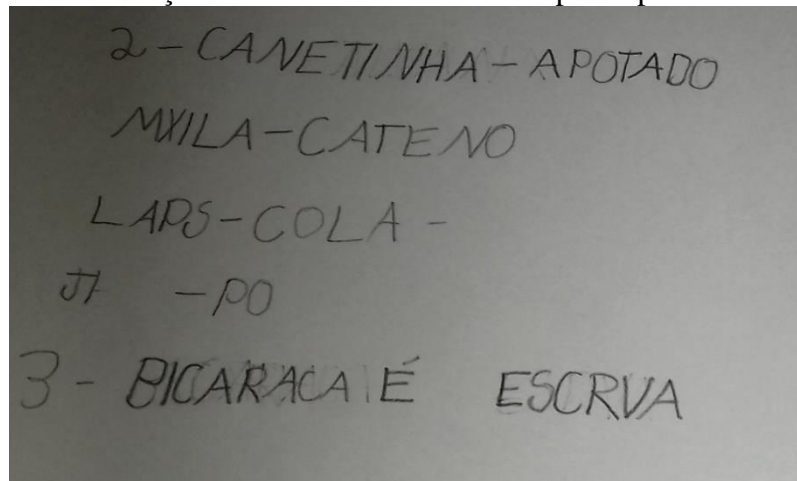 2-CANETINHA-APOTADO
MXILA-CATENO
LAPS-COLA-
-PO
3-BICARACA É ESCRVA